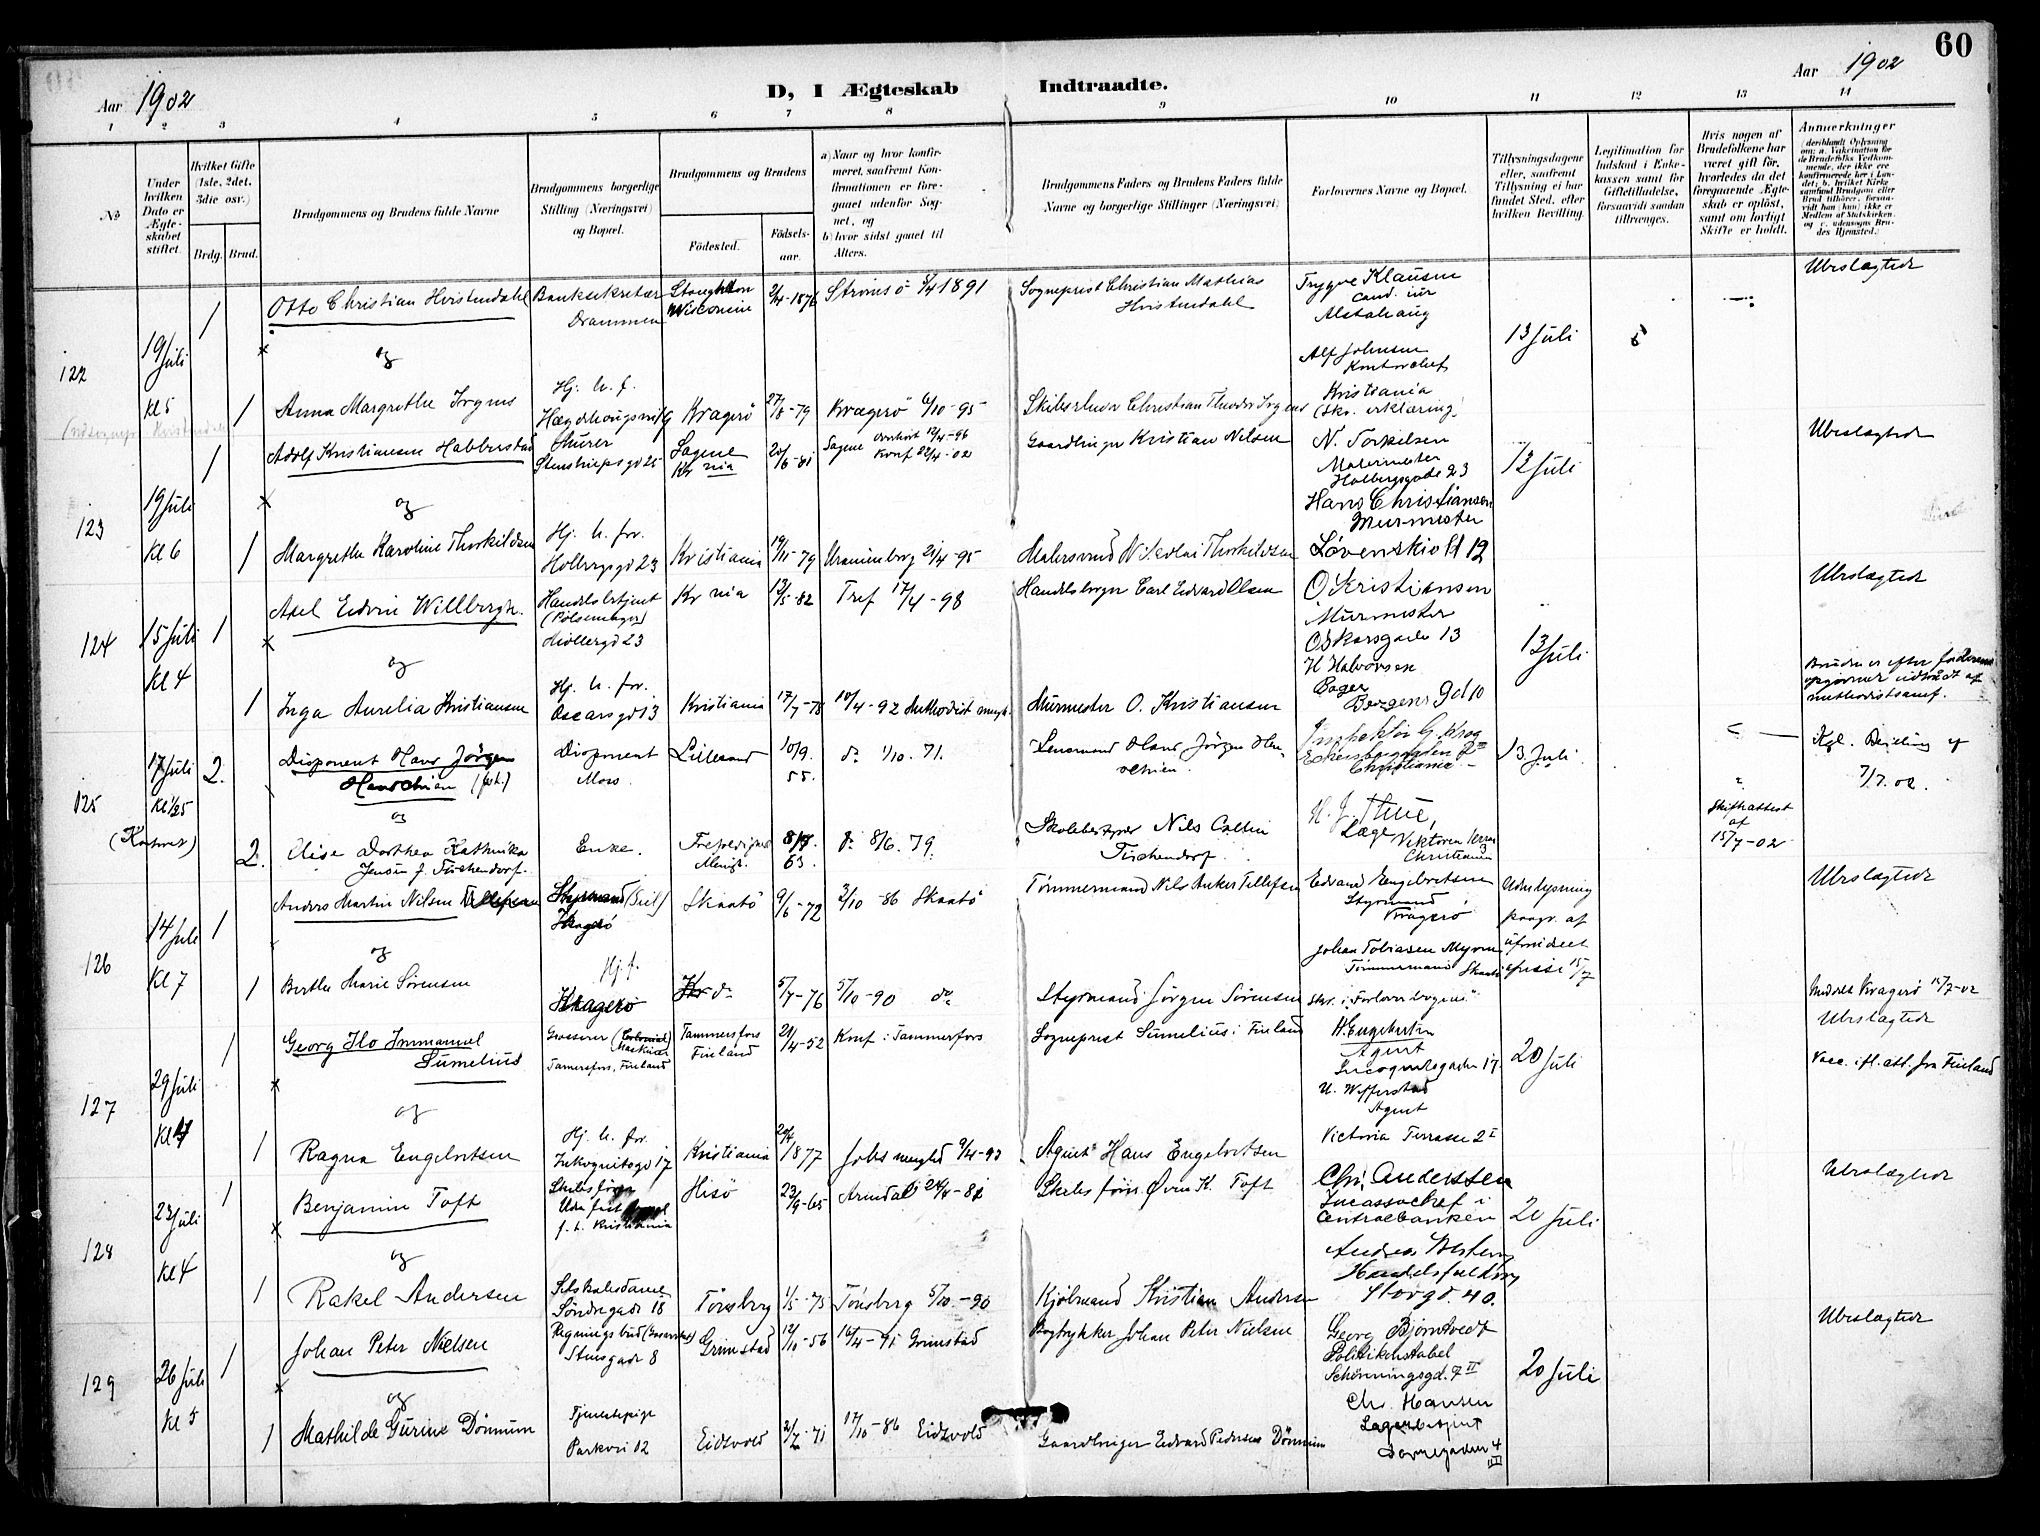 60
Aar 1902
D, I Ægteskab Indtraadte.
Aar 1902
1 2 3 4 5 6 7 8 9 10 11 12 13 14
No
Under hvilken Dato er Ægteskabet stiftet.
Hvilket Gifte (1ste, 2det, 3die osv.)
Brdg. Brud.
Brudgommens og Brudens fulde Navne
Brudgommens borgerlige Stilling (Næringsvei) og Bopæl.
Brudgommens og Brudens
Födested.
Födsels-aar.
a) Naar og hvor konfirmeret, saafremt Konfirmationen er foregaaet udenfor Sognet, og
b) hvor sidst gaaet til Alters.
Brudgommens Faders og Brudens Faders fulde Navne og borgerlige Stillinger (Næringsvei)
Forlovernes Navne og Bopæl.
Tillysningsdagene eller, saafremt Tillysning ei har fundet Sted, efter hvilken Bevilling.
Legitimation for Indskud i Enkekassen samt for Giftetilladelse, forsaavidt saadan tiltrænges.
Hvis nogen af Brudefolkene har været gift för, hvorledes da det foregaaende Ægteskab er oplöst, samt om lovligt Skifte er holdt.
Anmerkninger
122
19 Juli
Kl 5
1
Otto Christian Hvistendahl
Banksekretær
Drammen
Stoughton
Wisconsin
2/4-1876
Strömsö 5/4 1891
Sogneprest Christian Mathias
Hvistendahl
Trygve Klausen
cand. jur
Alstahaug
Alf Johnsen
Kontorchef
Kristiania
(Skr. erklæring)
13 Juli
Ubeslægtede
og
1
Anna Margrethe Irgens
Hj. h. f.
Kragerö
27/8-79
Kragerö 6/10-95
Skibsreder Christian Theodor Irgens
123
19 Juli
Kl 6
1
Adolf Kristiansen Habberstad
Murer
Stenstrupsgd 25
Sagene
Kr nia
20/6-81
Sagene
Konf 22/4-02
Gaardbruger Kristian Nilsen
N. Torkilsen
Malermester
Holbergsgade 23
Hans Christiansen
Murmester
Løvenskiold 12
13 Juli
Ubeslægtede
og
1
Margrethe Karoline Thorkildsen
Hj. h. for.
Holbergsgd 23
Kristiania
19/11-79
Uranienborg 21/4-95
Malersvend Nikolai Thorkildsen
124
15 Juli
Kl 4
1
Axel Edvin Willbergh.
Handelsbetjent
(Pölsemager)
Möllergd 23
Kr nia
13/5-82
Tref 17/4-98
Handelsborger Carl Edvard Olsen
O Kristiansen
Murmester
Oskarsgade 13
H Halvorsen
Bager
Bergens Gd 10
13 Juli
Ubeslægtede
og
1
Inga Aurelia Kristiansen
Hj. h. for.
Oscarsgd 13
Kristiania
17/7-78
10/4-92 Methodist menigh.
Murmester O. Kristiansen
Bruden er efter
udtraadt af
methodistsamf.
125
17 Juli
Kl 1/2 5
2.
Disponent Hans Jörgen
Disponent
Moss.
Lillesand
10/9.
55.
do 1/10. 71.
Lensmand Hans Jörgen
Inspektör G. Krog
Christiania
13. Juli.
Kgl. Bevilling af
7/7. 02.
og
2.
Elise Dorthea Kathinka
Jensen f. Tischendorf.
Enke.
63.
do 8/6. 79.
Skolebestyrer Nils Collin
Tischendorf.
H. J. Thue,
Læge Viktoria Terrasse
Christiania
Skifteattest
af
15/7-02
126
14 Juli
Kl 7
1
Anders Martin Nilsen Tellefsen
Styrmand (Seil)
Kragerö
Skaatö
9/6-72
3/10-86 Skaatö
Tömmermand Nils Anker Tellefsen
Edvard Engebretsen
Styrmand
Kragerö
Johan Tobiassen Myren
Tömmermand Skaatö
Ubeslægtede
og
1
Berthe Marie Sörensen
Hj. f.
Kragerö
do
5/7-76
5/10-90 do
Styrmand Jörgen Sörensen
Skr. i "Forloverbogen"
Meddelt Kragerö 15/7-02
127
29 Juli
1
Georg Ilo Immanuel
Sumelius
Grosserer
Tammerfors, Finland
Tammersfors
Finland
21/4-52
Konf i Tammerfors
Sogneprest Sumelius i Finland
H. Engebretsen
Agent
Incognitogaden 17.
Agent
Victoria Terrasse 2 I
20 Juli
Ubeslægtede
Vacc. ifl. att. fra Finland
og
1
Ragna Engebretsen
Hj. h. for.
Inkognitogd 17
Kristiania
1877
Jobs menighed 9/4-93
Agent Hans Engebretsen
128
23 Juli
Kl 4
1
Benjamin Toft
Skibsförer
Uden fast
f. t. Kristiania
Hisö
23/9-65
Arendal
Skibsförer Øven K. Toft
Chr. Anderssen
Incassochef i
Centralbanken
20 Juli
Ubeslægtede
og
1
Rakel Andersen
Selskabsdame
Söndregade 18
Tönsberg
1/5-75
Tönsberg 5/10.-90
Kjöbmand Kristian Andersen
Storgt. 40.
129
26 Juli
Kl 5
1
Johan Peter Nielsen
Regningsbud
Stensgade 8
Grimstad
12/10-56
Grimstad
Bogtrykker Johan Peter Nielsen
Georg Bjørntvedt
Politikonstabel
Schönningsgd. 7 II
Chr. Hansen
Lagerbetjent
20 Juli
Ubeslægtede
og
1
Mathilde Gurine Dönnum
Tjenestepige
Parkvei 12
Eidsvold
17/10-86 Eidsvold
Gaardbruger Edvard Pedersen Dönnum